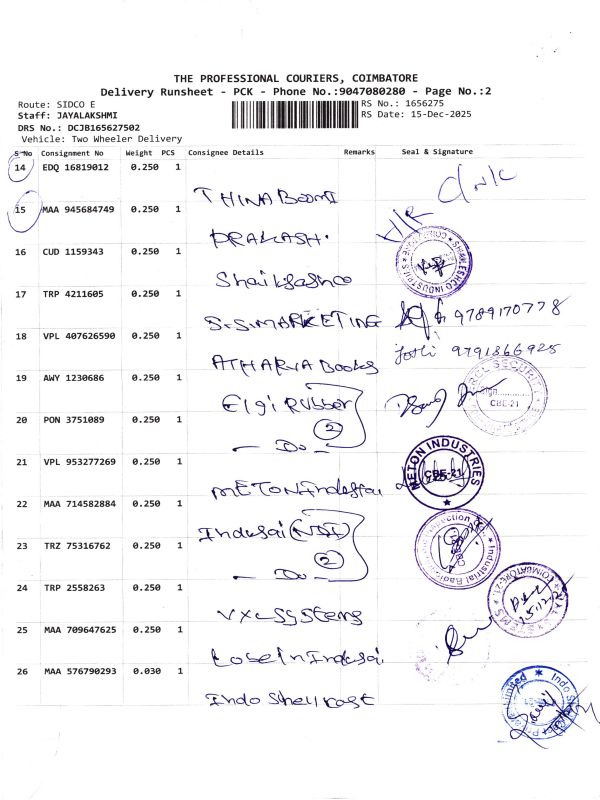 THE PROFESSIONAL COURIERS, COIMBATORE
Delivery Runsheet - PCK - Phone No.:9047080280 - Page No.:2
Route: SIDCO E RS No.: 1656275
Staff: JAYALAKSHMI RS Date: 15-Dec-2025
DRS No.: DCJB165627502
Vehicle: Two Wheeler Delivery
S No Consignment No Weight PCS Consignee Details Remarks Seal & Signature
14 EDQ 16819012 0.250 1
THINABOOMI
15 MAA 945684749 0.250 1
PRAKASH.
16 CUD 1159343 0.250 1
17 TRP 4211605 0.250 1
S.S.MARKETING 9789170778
18 VPL 407626590 0.250 1
ATHARVA Books 9791866925
19 AWY 1230686 0.250 1
Elgi Rubber
CBE-21
20 PON 3751089 0.250 1
2
Do
21 VPL 953277269 0.250 1
METON INDUSTRIES
CBE-21
METON
22 MAA 714582884 0.250 1
23 TRZ 75316762 0.250 1
2
Do
24 TRP 2558263 0.250 1
COIMBATORE-21
25 MAA 709647625 0.250 1
26 MAA 576790293 0.030 1
Indo Shell